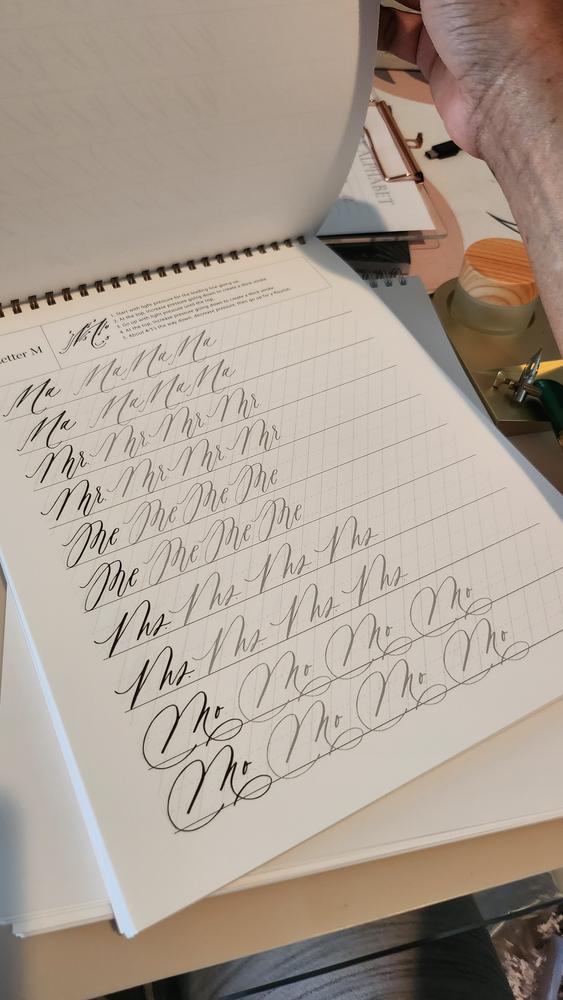 ALPHABET
etter M
1. Start with light pressure for the leading line going up.
2. At the top, increase pressure going down to create a thick stroke.
3. Go up with light pressure until the top.
4. At the top, increase pressure going down to create a thick stroke.
5. About 4/5's the way down, decrease pressure, then go up for a flourish.
Ma Ma Ma Ma
Ma Ma Ma Ma
Mr. Mr. Mr. Mr
Mr. Mr. Mr. Mr
Me Me Me Me
Me Me Me Me
Ms. Ms. Ms. Ms
Ms. Ms. Ms. Ms.
Mo Mo Mo Mo
Mo Mo Mo Mo